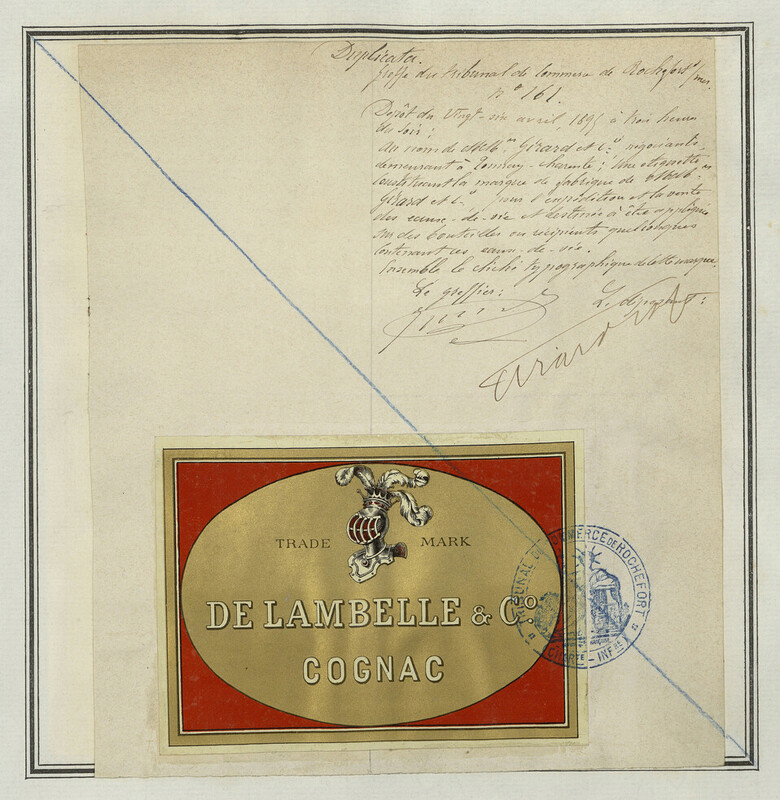 Duplicata.
Greffe du tribunal de Commerce de Rochefort s/mer.
N° 161.
Dépôt du Vingt-six avril, 1895 à trois heures
du soir;
Au nom de MM. Girard et Cie négociants,
demeurant à Tonnay-Charente; Une étiquette
constituant la marque de fabrique de MM.
Girard et Cie pour l'expédition et la vente
des eaux-de-vie et destinée à être appliquée
sur des bouteilles ou récipients quelconques
contenant ces eaux-de-vie.
Ensemble le cliché typographique de cette marque.
Le greffier:
Le déposant:
Girard
TRADE MARK
DE LAMBELLE & Co.
COGNAC
TRIBUNAL DE COMMERCE DE ROCHEFORT
CHARTE - INFRE